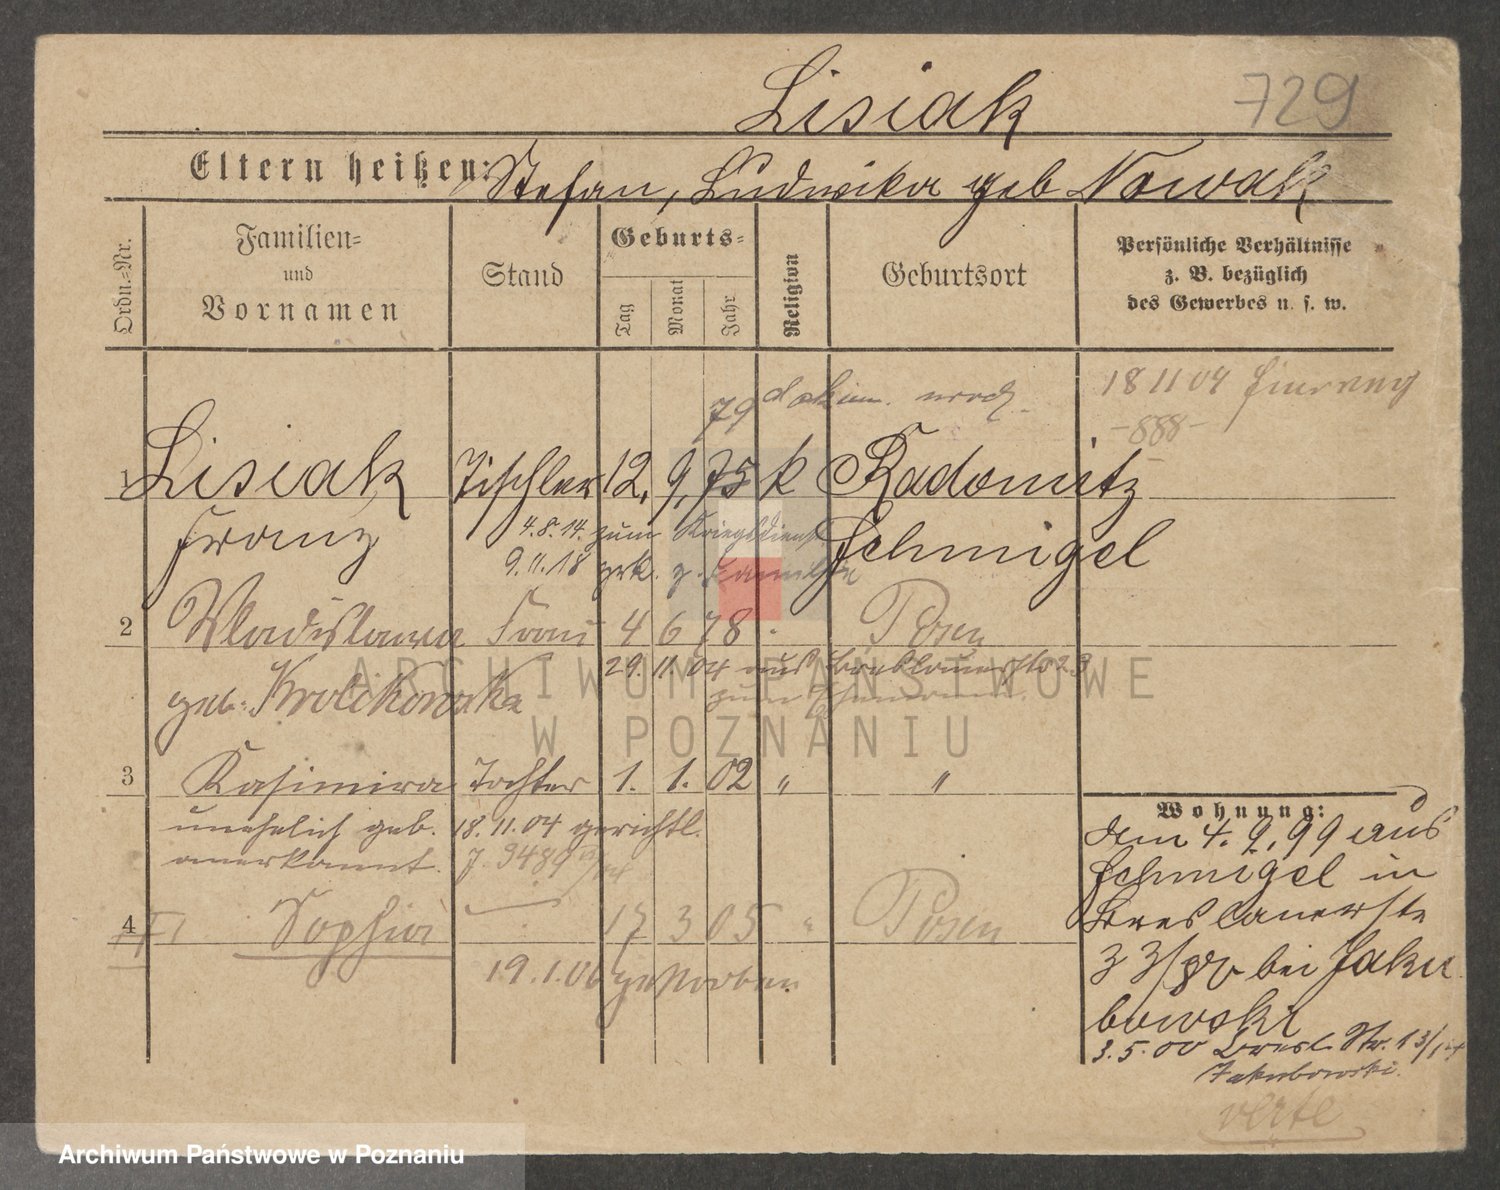 Lisiak 729
Eltern heißen: Stefan, Ludwika geb Nowak
Ordn.-Nr. Familien- und Vornamen Stand Geburts- Tag Monat Jahr Religion Geburtsort Persönliche Verhältnisse z. B. bezüglich des Gewerbes u. s. w.
18 11 04
79
-888-
1 Lisiak Tischler 12. 9. 75 k Radomitz
Franz 4.8.14. zum Kriegsdienst Schmigel
9.11.18 zrk. z. Familie
2 Wladislawa Frau 4 6 78 " Posen
29.11.04 aus Breslauerstr 23
geb. Krolikowska
3 Kasimira Tochter 1. 1. 02 " "
unehelich geb. 18.11.04 gerichtl.
anerkannt. J. 3489
4 Sophia 17 3 05 " Posen
19.1.06 gestorben.
Wohnung:
dem 4.9.99 aus
Schmigel in
Breslauerstr
33/ bei Jaku
bowski
3.5.00 Bresl. Str. 13/14
Jakubowski.
verte
ARCHIWUM PAŃSTWOWE
W POZNANIU
Archiwum Państwowe w Poznaniu